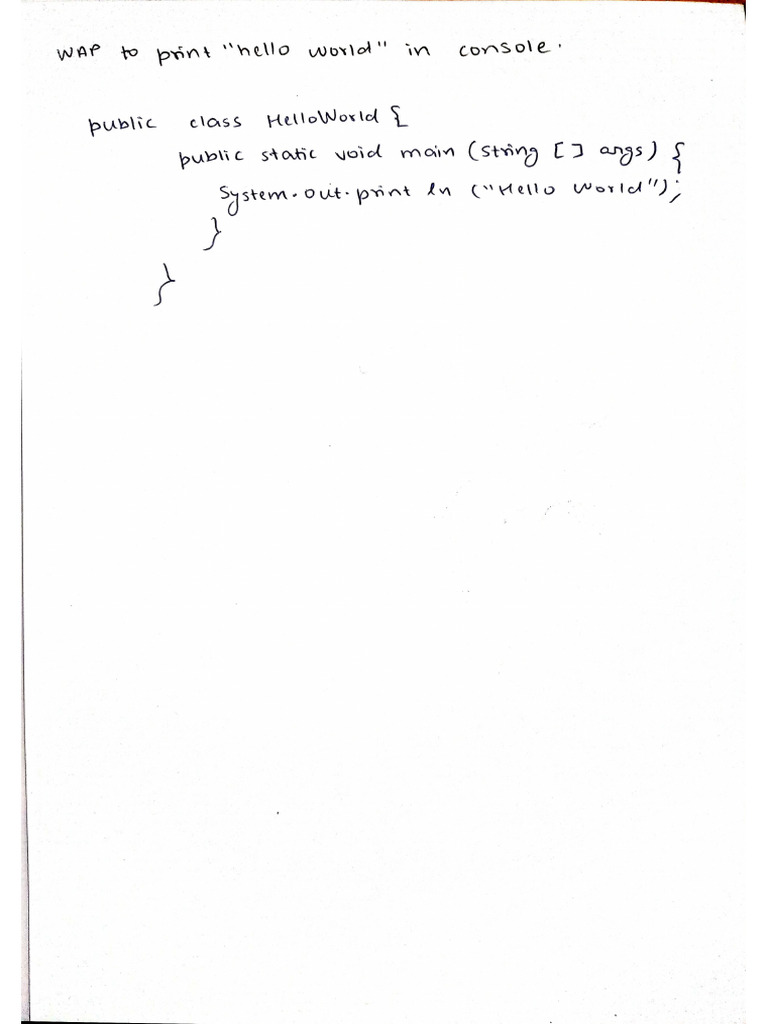 WAP to print "hello world" in console.
public class HelloWorld {
public static void main (string [] args) {
System.out.print ln ("Hello World");
}
}